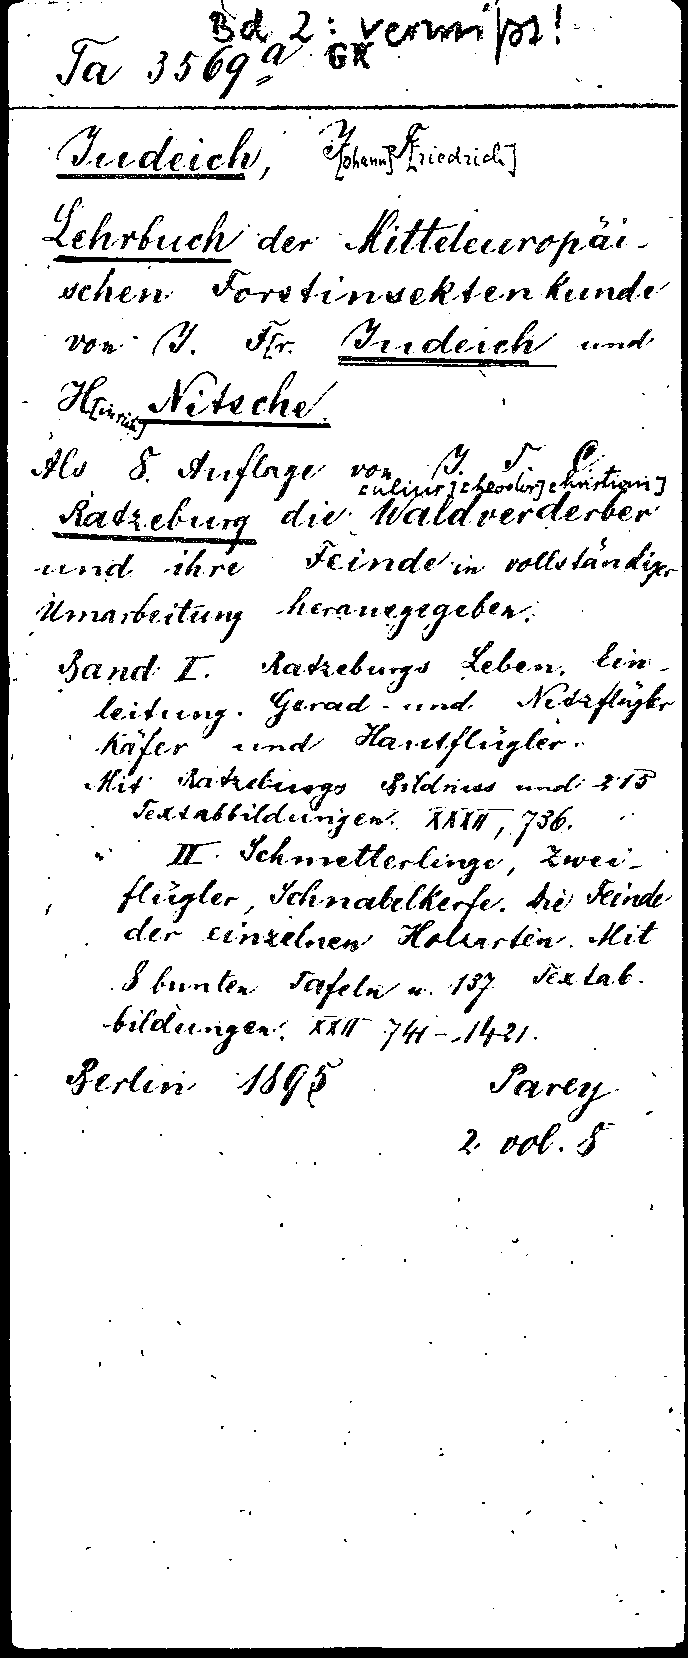 Bd 2: vermißt!
Ta 3569a GK
Judeich, J[ohann] F[riedrich]
Lehrbuch der Mitteleuropäi-
schen Forstinsektenkunde
von J. Fr. Judeich und
H[inrich] Nitsche.
Als 8. Auflage von J. T. C.
[ulius] [heodor] [hristian]
Ratzeburg die Waldverderber
und ihre Feinde in vollständiger
Umarbeitung herausgegeben.
Band I. Ratzeburgs Leben. Ein-
leitung. Gerad- und Netzflügler
Käfer und Hautflügler.
Mit Ratzeburgs Bildniss und 215
Textabbildungen. XXXII, 736.
" II. Schmetterlinge, Zwei-
flügler, Schnabelkerfe. Die Feinde
der einzelnen Holzarten. Mit
8 bunten Tafeln u. 137 Textab-
bildungen. XXII 741-1421.
Berlin 1895 Parey
2 vol. 8